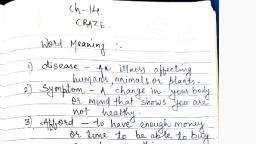 Ch-14.
CRAZE.
Word Meaning :-
1) disease - An illness affecting
humans, animals or plants.
2) Symptom - A change in your body
or mind that shows you are
not healthy.
3) Afford - to have enough money
or time to be able to buy